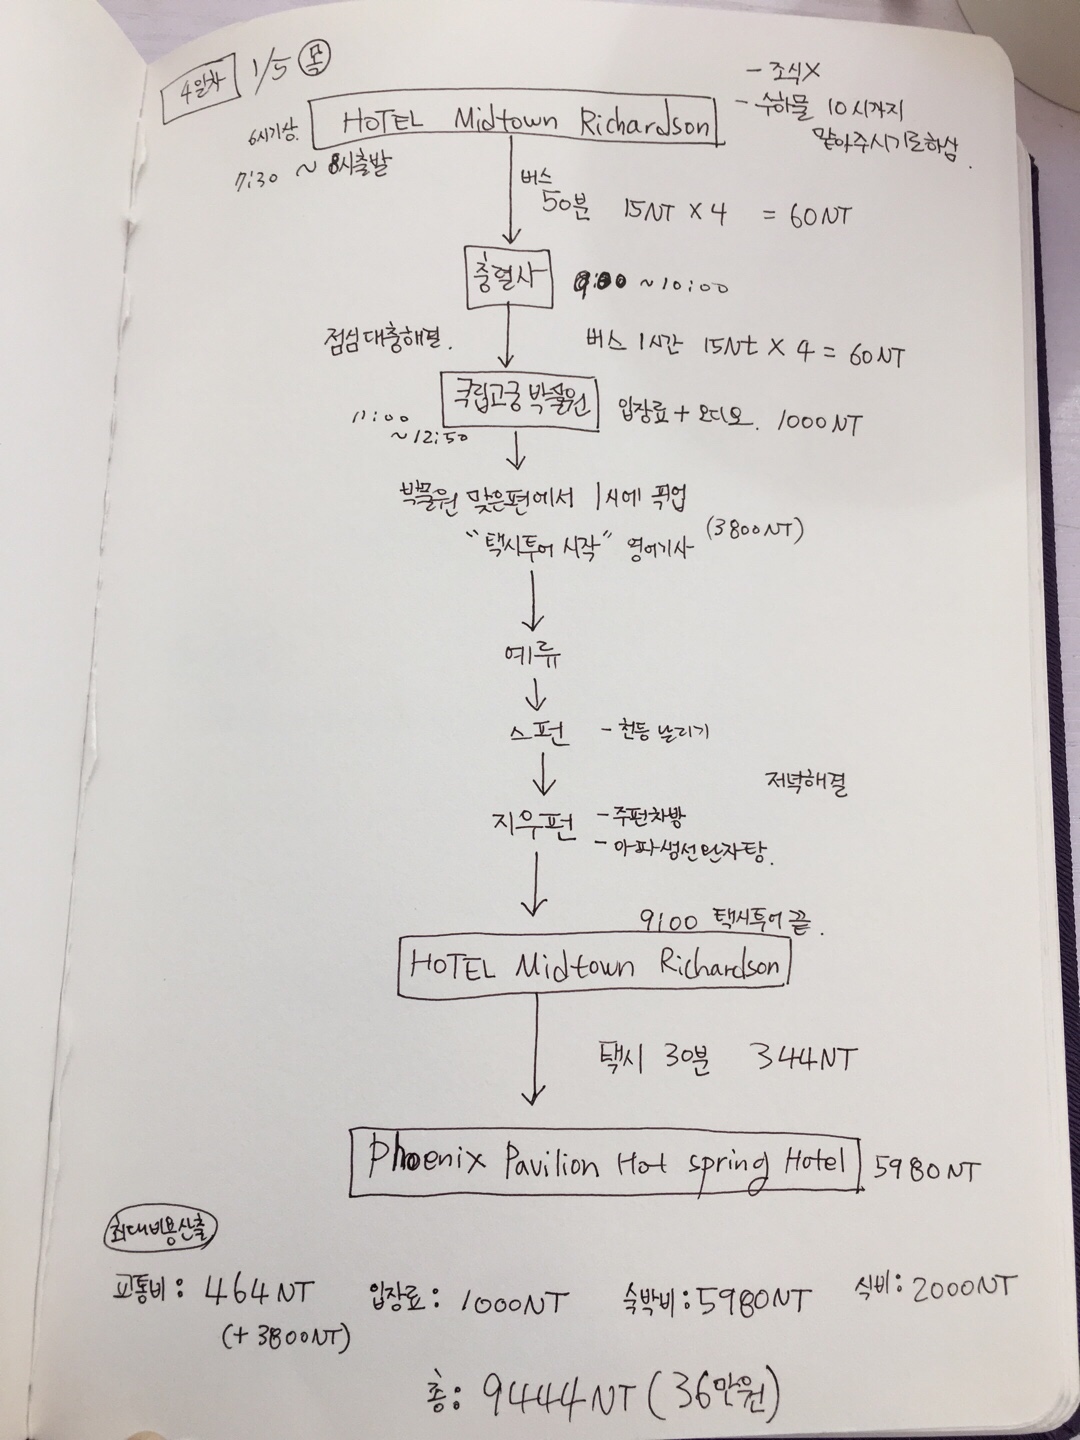 4일차 1/5 목
- 조식X
- 수하물 10시까지
맡아주시기로하심.
6시기상.
HOTEL Midtown Richardson
7:30 ~ 8시출발
버스
50분 15NT X 4 = 60NT
충렬사 9:00 ~ 10:00
점심대충해결.
버스 1시간 15Nt X 4 = 60NT
국립고궁박물원 입장료 + 오디오. 1000NT
11:00
~ 12:50
박물원 맞은편에서 1시에 픽업
"택시투어 시작" 영어기사 (3800NT)
예류
스펀 - 천등날리기
저녁해결
지우펀 - 주펀차방
- 아파생선완자탕.
9:00 택시투어 끝.
HOTEL Midtown Richardson
택시 30분 344NT
Phoenix Pavilion Hot spring Hotel 5980NT
최대비용산출
교통비: 464NT 입장료: 1000NT 숙박비: 5980NT 식비: 2000NT
(+ 3800NT)
총: 9444NT (36만원)